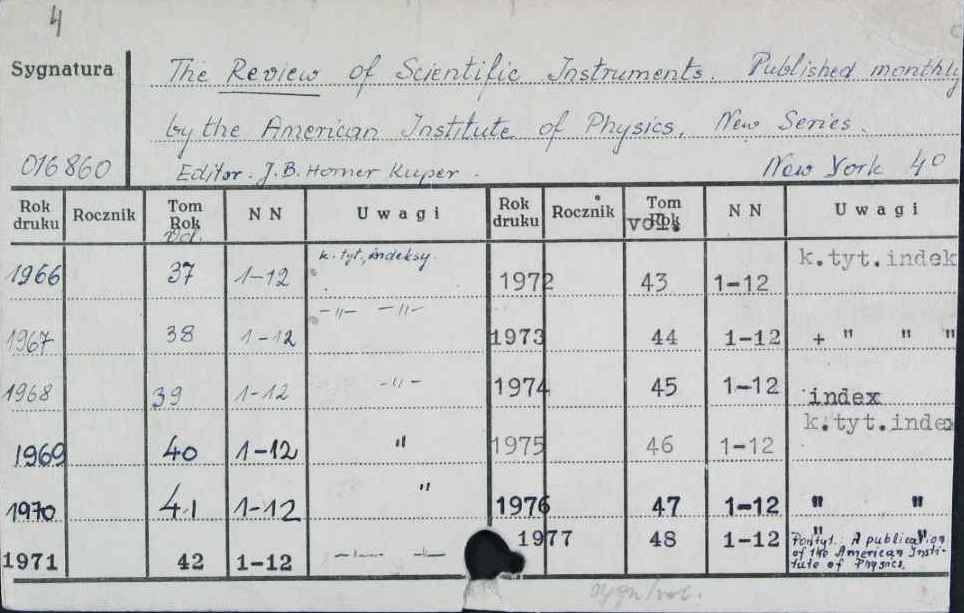 4
Sygnatura The Review of Scientific Instruments. Published monthly
by the American Institute of Physics. New Series.
016860 Editor. J.B. Horner Kuper. New York 4°
Rok druku Rocznik Tom Rok Vol. NN Uwagi Rok druku Rocznik Tom Rok vol. NN Uwagi
1966 37 1-12 k. tyt., indeksy. 1972 43 1-12 k.tyt.indek
1967 38 1-12 -"- -"- 1973 44 1-12 + " " "
1968 39 1-12 -"- 1974 45 1-12 index
1969 40 1-12 " 1975 46 1-12 k.tyt.index
1970 41 1-12 " 1976 47 1-12 " "
1971 42 1-12 -"- -"- 1977 48 1-12 " "
Pod tyt.: A publication
of the American Insti-
tute of Physics.